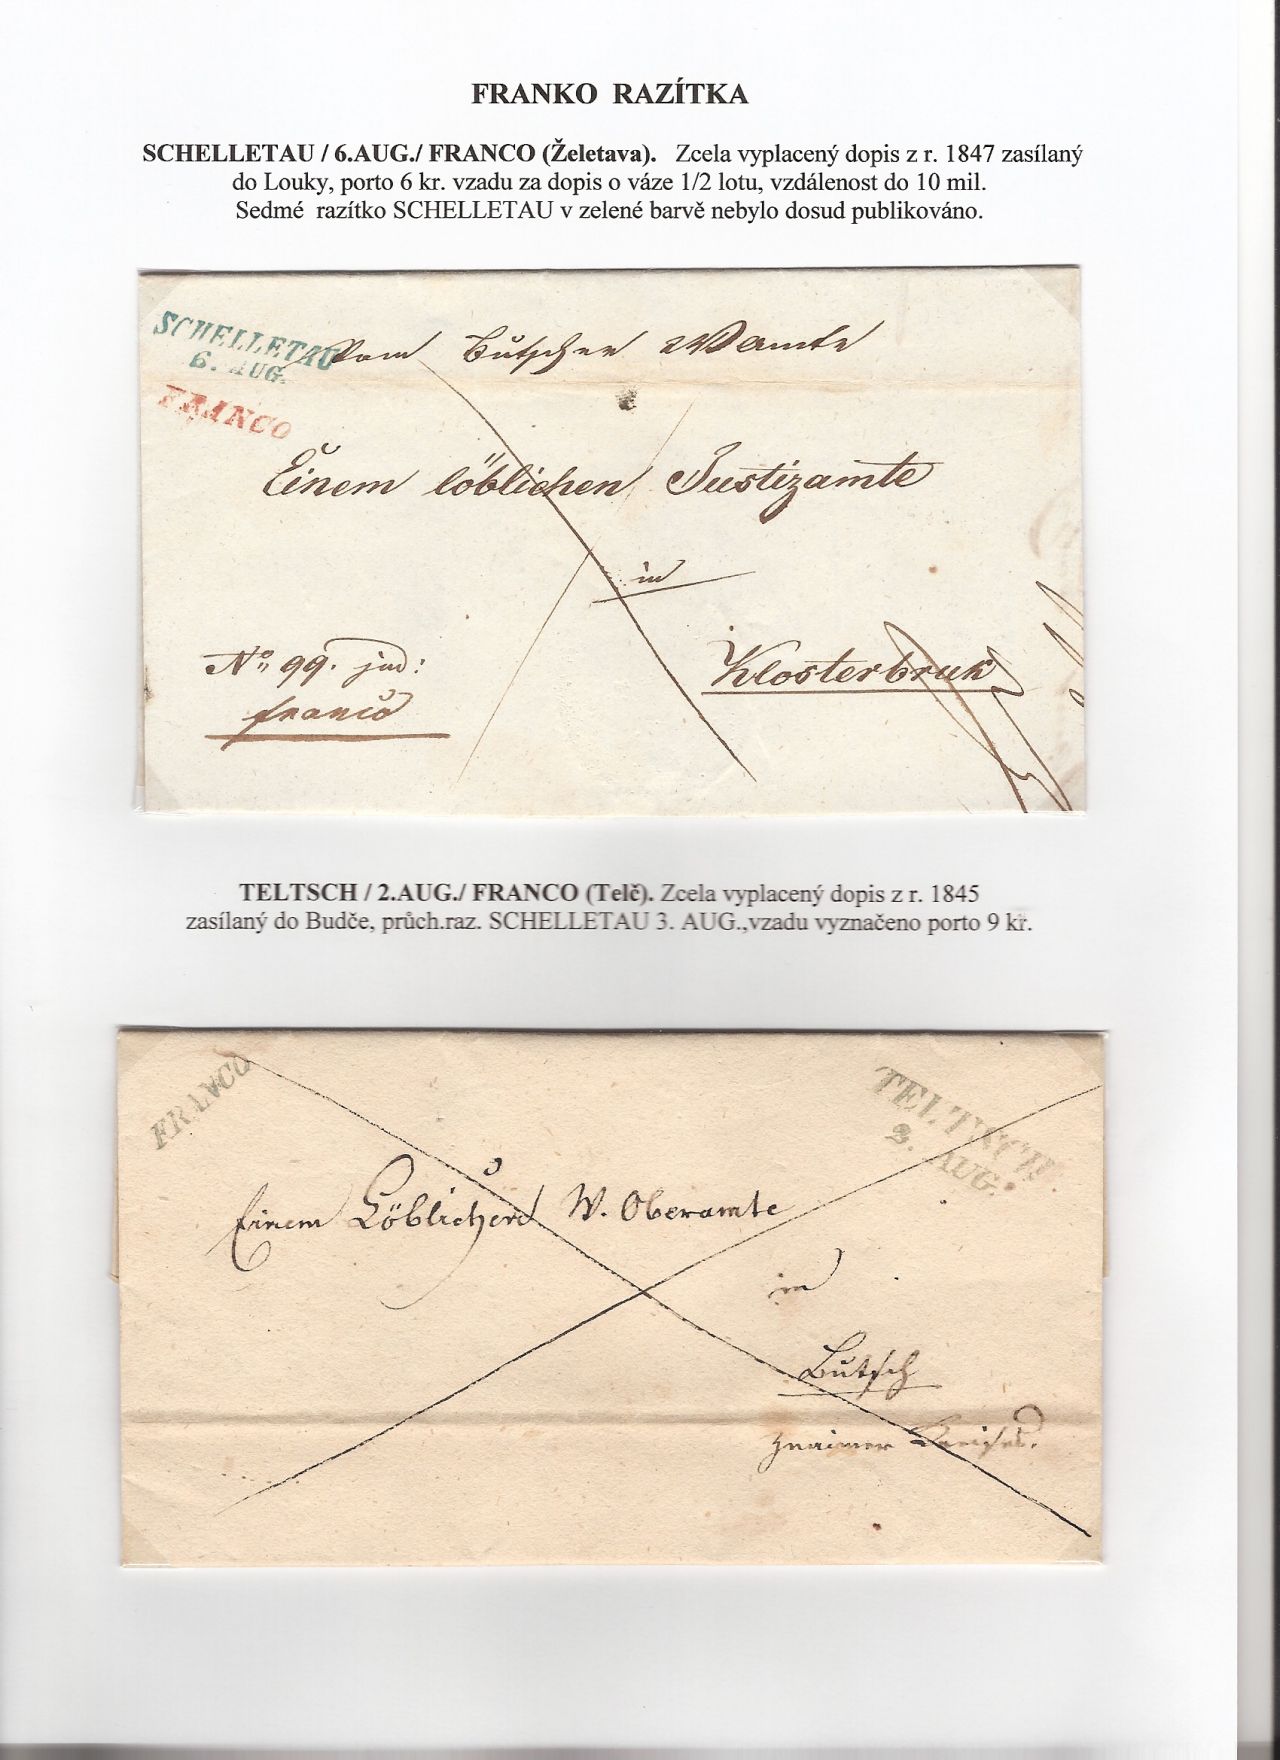 FRANKO RAZÍTKA
SCHELLETAU / 6.AUG./ FRANCO (Želetava). Zcela vyplacený dopis z r. 1847 zasílaný
do Louky, porto 6 kr. vzadu za dopis o váze 1/2 lotu, vzdálenost do 10 mil.
Sedmé razítko SCHELLETAU v zelené barvě nebylo dosud publikováno.
SCHELLETAU
6. AUG.
FRANCO
Vom Butscher WAmte
Einem löblichen Justizamte
in
Klosterbruk
No 99. jud:
franco
TELTSCH / 2.AUG./ FRANCO (Telč). Zcela vyplacený dopis z r. 1845
zasílaný do Budče, průch.raz. SCHELLETAU 3. AUG.,vzadu vyznačeno porto 9 kr.
FRANCO
TELTSCH
2. AUG.
Einem Löblichen W. Oberamte
in
Butsch
Znaimer Kreises.